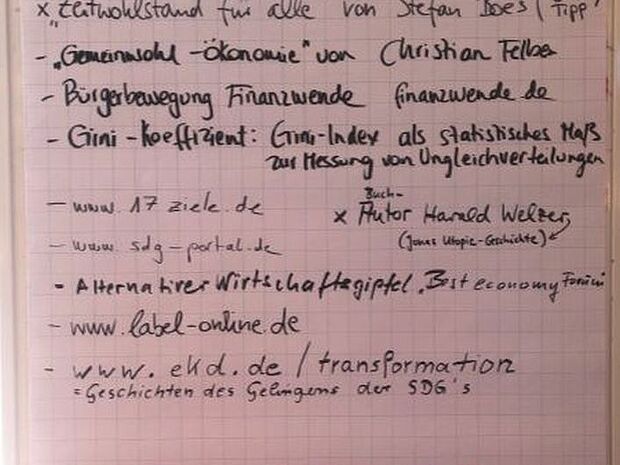 x "Zeitwohlstand für alle von Stefan Boes (Tipp
- „Gemeinwohl-Ökonomie" von Christian Felber
- Bürgerbewegung Finanzwende finanzwende.de
- Gini-Koeffizient: Gini-Index als statistisches Maß
zur Messung von Ungleichverteilungen
- www.17ziele.de
Buch-
x Autor Harald Welzer,
- www.sdg-portal.de
(Utopie-Geschichte)
- Alternativer Wirtschaftsgipfel „Best economy Forum"
- www.label-online.de
- www.ekd.de/transformation
= Geschichten des Gelingens der SDG's